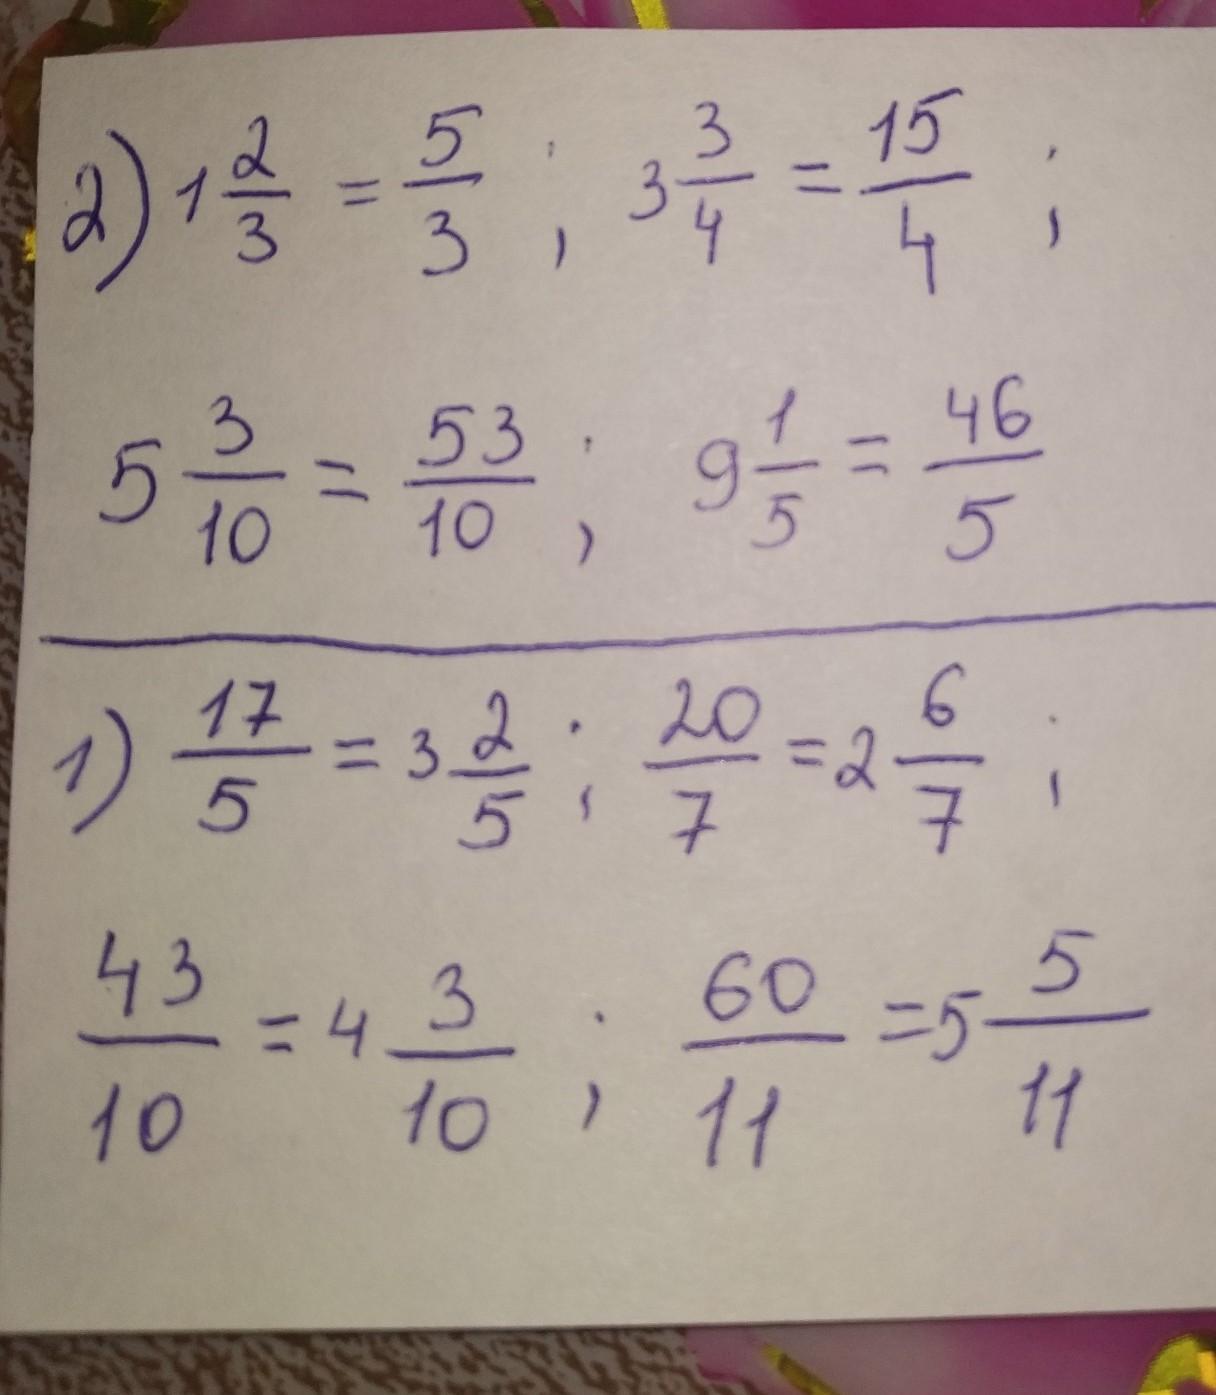 2) 1 2/3 = 5/3 ; 3 3/4 = 15/4 ;
5 3/10 = 53/10 ; 9 1/5 = 46/5
1) 17/5 = 3 2/5 ; 20/7 = 2 6/7 ;
43/10 = 4 3/10 ; 60/11 = 5 5/11